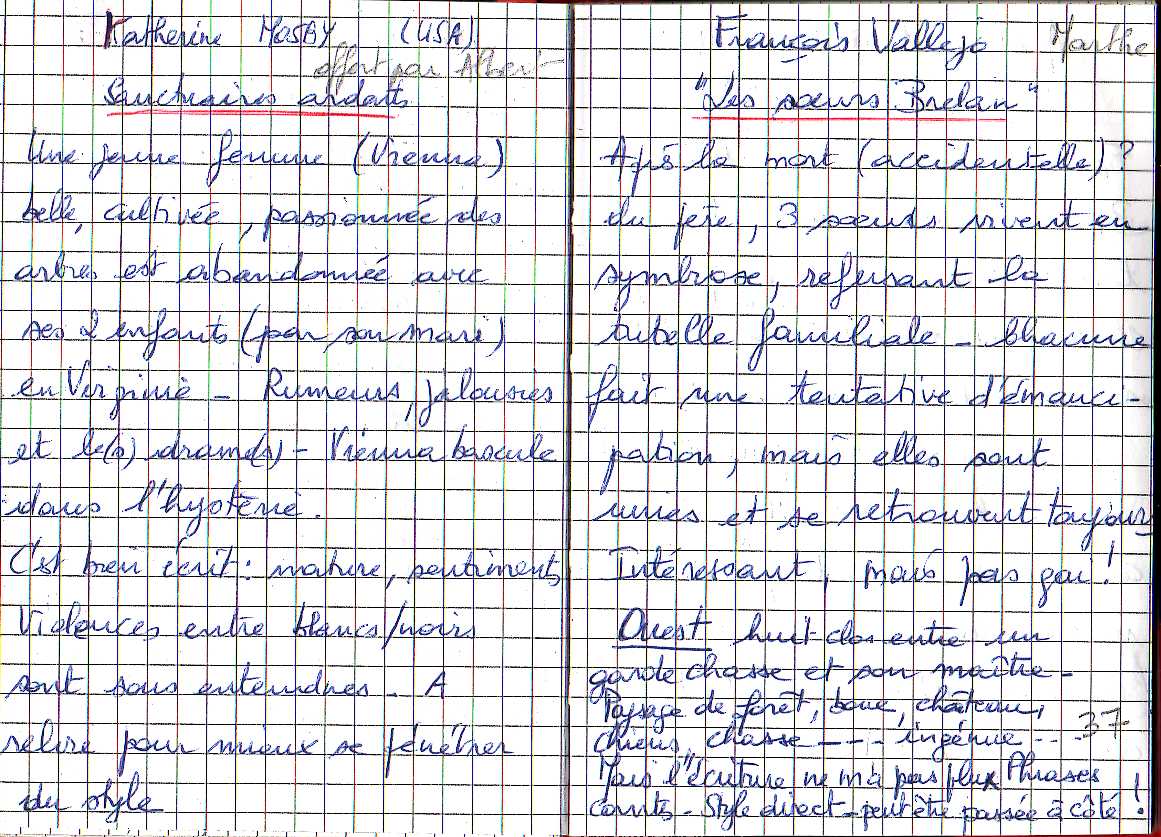 Katherine MOSBY (USA)
offert par Albert
Sanctuaires ardents
Une jeune femme (Vienna)
belle, cultivée, passionnée des
arbres est abandonnée avec
ses 2 enfants (par son mari)
en Virginie - Rumeurs, jalousies
et le(s) drame(s) - Vienna bascule
dans l'hystérie.
C'est bien écrit : nature, sentiments,
Violences entre blancs/noirs
sont sous entendues. A
relire pour mieux se pénétrer
du style
François Vallejo Marthe
"Les sœurs Brelan"
Après la mort (accidentelle) ?
du père, 3 sœurs vivent en
symbiose, refusant la
tutelle familiale - Chacune
fait une tentative d'émanci-
pation, mais elles sont
unies et se retrouvent toujours
Intéressant, mais pas gai !
Ouest huit clos entre un
garde chasse et son maître -
Paysage de forêt, boue, château,
chiens, chasse ---- ingénue ... 37
Mais l'écriture ne m'a pas plu x Phrases
courtes - Style direct - peut être passée à côté !